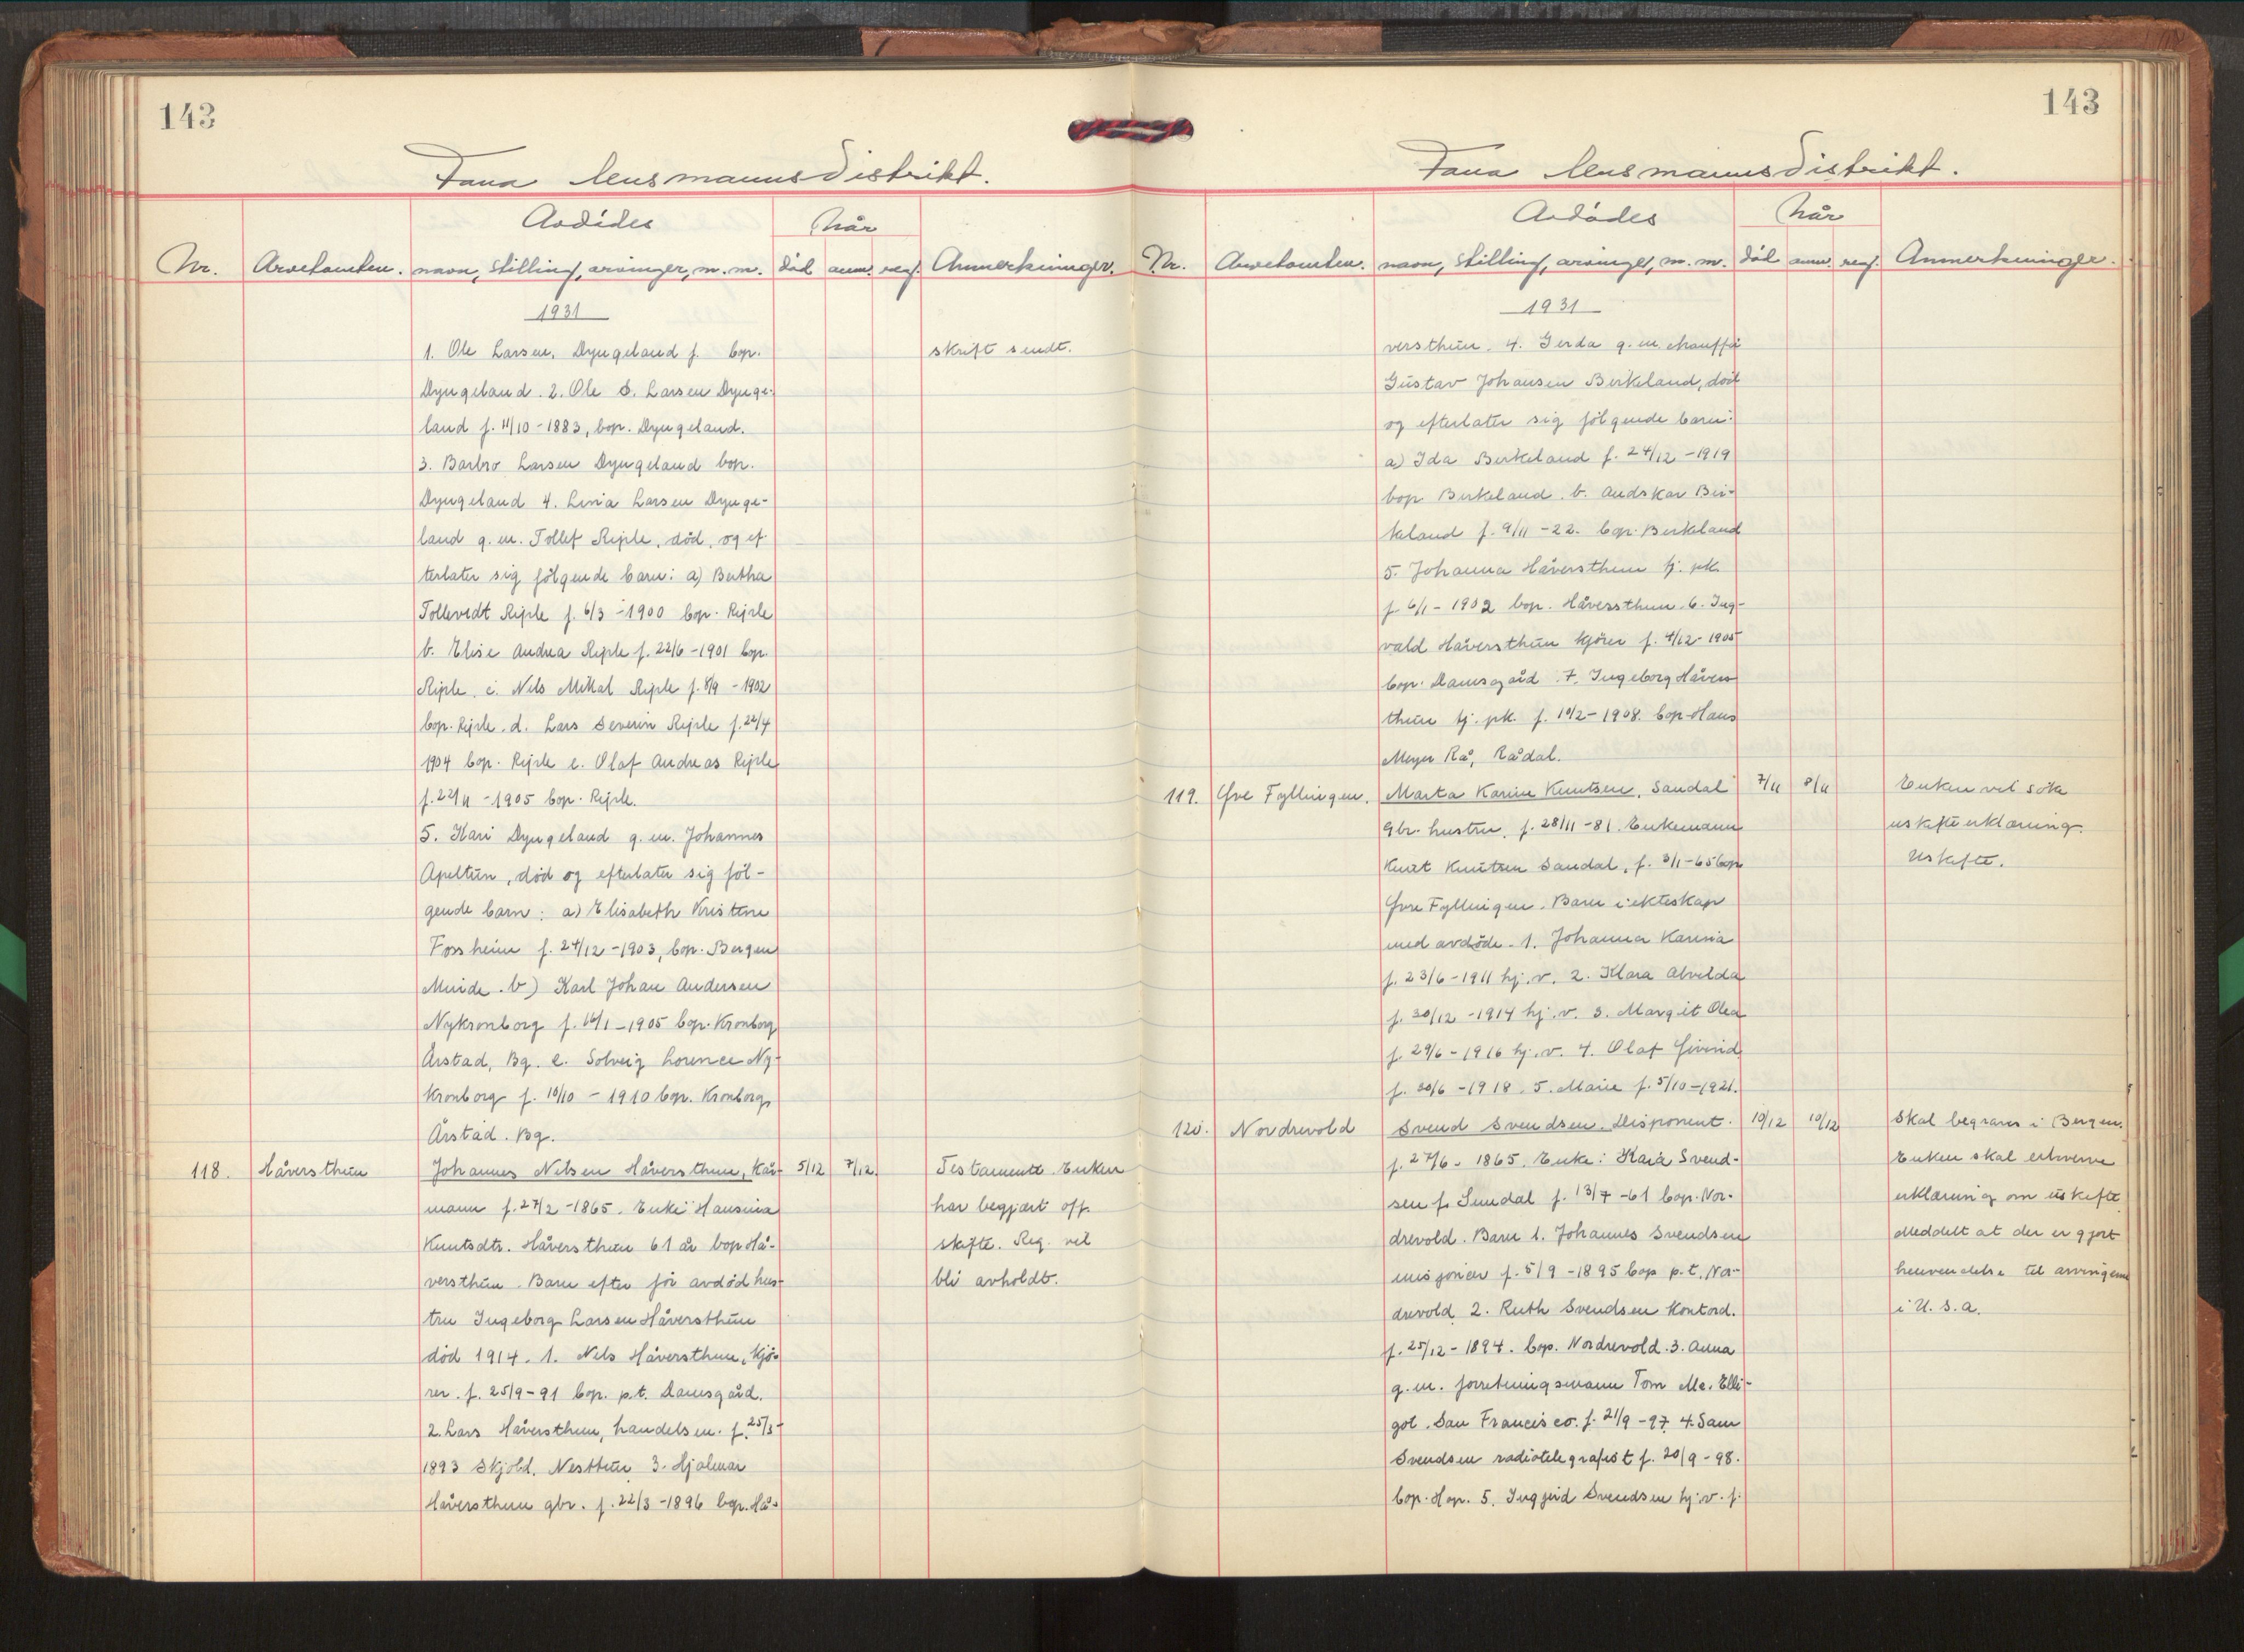 143
Fana lensmannsdistrikt.
Nr. Arvetomten. Avdödes navn, stilling, arvinger, m. m. Når död anm. reg. Anmerkninger.
1931
1. Ole Larsen, Dyngeland f. bop. skrift sendt.
Dyngeland. 2. Ole S. Larsen Dynge-
land f. 11/10-1883, bop. Dyngeland.
3. Barbro Larsen Dyngeland bop.
Dyngeland 4. Lina Larsen Dynge-
land g. m. Tollef Riple, död, og ef-
terlater sig fölgende barn: a) Bertha
Tollevedt Riple f. 6/3-1900 bop. Riple
b. Elise Andrea Riple f. 22/6-1901 bop.
Riple. c. Nils Mikal Riple f. 8/9-1902
bop. Riple. d. Lars Severin Riple f. 22/4
1904 bop. Riple e. Olaf Andreas Riple
f. 22/11-1905 bop. Riple.
5. Kari Dyngeland g. m. Johannes
Apeltun, död og efterlater sig föl-
gende barn: a) Elisabeth Kristine
Forsheim f. 24/12-1903, bop. Bergen
Minde. b) Karl Johan Andersen
Nykronborg f. 16/1-1905 bop. Kronborg
Årstad, Bg. c. Solveig Lorence Ny-
kronborg f. 10/10-1910 bop. Kronborg,
Årstad. Bg.
118. Håversthun Johannes Nilsen Håversthun, Kår- 5/12 7/12. Testamente. Enken
mann f. 27/2-1865. Enke: Hansina har begjært off.
Knutsdtr. Håversthun 61 år bop Hå- skifte. Reg. vil
versthun. Barn efter för avdöd hus- bli avholdt.
tru Ingeborg Larsen Håversthun
död 1914. 1. Nils Håversthun, kjö-
rer. f. 25/9-91 bop. p.t. Damsgård.
2. Lars Håversthun, handelsm. f. 25/3-
1893 Skjold, Nesttun 3. Hjalmar
Håversthun gbr. f. 22/3-1896 bop. Hå-
143
Fana lensmannsdistrikt.
Nr. Arvetomten. Avdödes navn, stilling, arvinger, m. m. Når död anm. reg. Anmerkninger.
1931
versthun. 4. Gerda g. m. chauffør
Gustav Johansen Birkeland, död
og efterlater sig fölgende barn:
a) Ida Birkeland f. 24/12-1919
bop. Birkeland. b. Audskar Bir-
keland f. 9/11-22. bop. Birkeland
5. Johanna Håversthun tj. pk.
f. 6/1-1902 bop. Håversthun. 6. Ing-
vald Håversthun kjörer f. 4/12-1905
bop. Damsgård. 7. Ingeborg Håvers-
thun tj. pk. f. 10/2-1908. bop Hans
Meyer Rå, Rådal.
119. Øvre Fyllingen. Marta Karine Knutsen, Sandal 7/11 8/11 Enken vil söke
Gbr. hustru, f. 28/11-81. Enkemann uskifteerklæring.
Knut Knutsen Sandal, f. 3/1-65 bop Uskifte.
Øvre Fyllingen. Barn i ekteskap
med avdöde. 1. Johanna Karina
f. 23/6-1911 hj. v. 2. Klara Alvilda
f. 30/12-1914 hj. v. 3. Margit Olea
f. 29/6-1916 hj. v. 4. Olaf Eivind
f. 30/6-1918. 5. Marie f. 5/10-1921.
120. Nordrevold Svend Svendsen. Disponent. 10/12 10/12 Skal begraves i Bergen.
f. 27/6-1865. Enke: Kaia Svend- Enken skal erhverve
sen f. Sundal f. 13/7-61 bop. Nor- erklæring om uskifte
drevold. Barn 1. Johannes Svendsen Meddelt at der er gjort
misjonær f. 5/9-1895 bop p.t. Nor- henvendelse til arvingene
drevold 2. Ruth Svendsen kontord. i U.S.A.
f. 25/12-1894. bop. Nordrevold. 3. Anna
g. m. forretningsmann Tom Mc. Elli-
got. San Francisco. f. 21/9-97. 4. Sam
Svendsen radiotelegrafist f. 20/9-98.
bop. Hop. 5. Ingrid Svendsen hj. v. f.